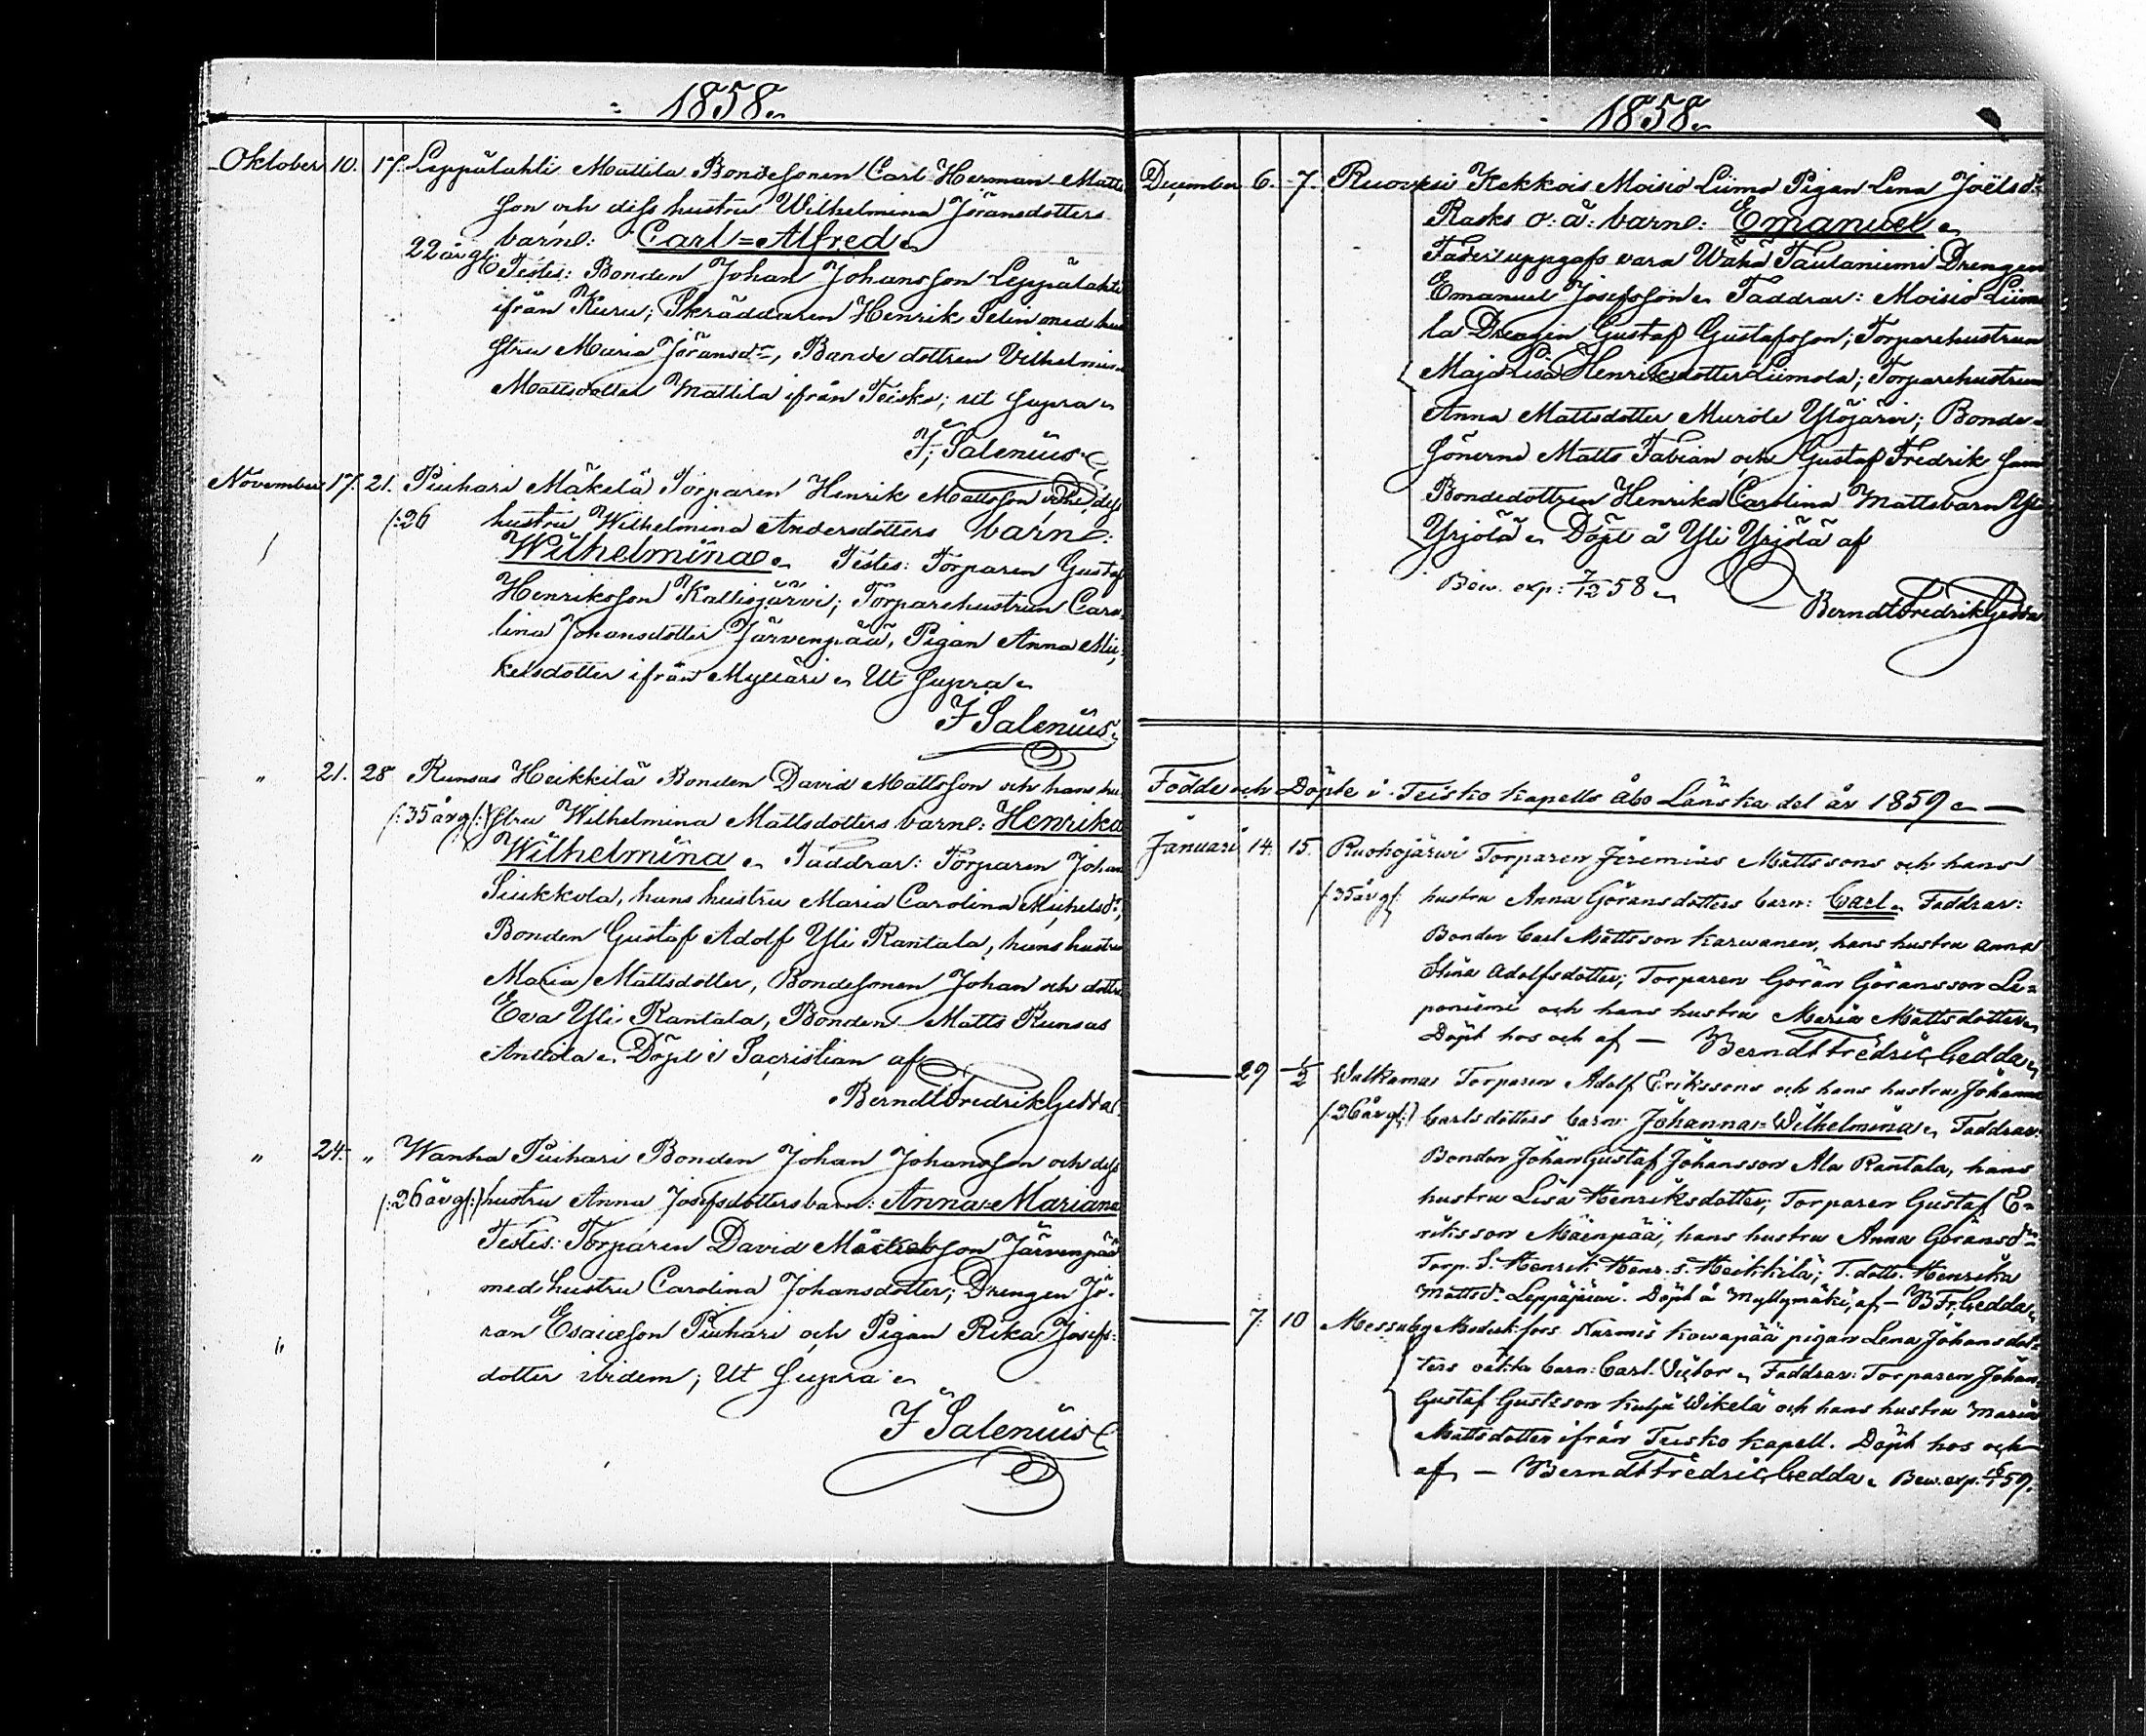 1858.
Oktober 10. 17. Leppälahti Mattila Bondesonen Carl Herman Matts
son och dess hustru Wilhelmina Jöransdotters
barn: Carl=Alfred.
22 år gl. Testes: Bonden Johan Johansson Leppälahti
ifrån Kuru; Skräddaren Henrik Selin med hu
stru Maria Jöransdr, Bonde dottren Vilhelmina
Mattsdotter Mattila ifrån Teisko; ut supra.
F. Salenius
November 17. 21. Piuhari Mäkelä Torparen Henrik Mattsson och dess
/:26 hustru Wilhelmina Andersdotters barn:
Wilhelmina. Testes: Torparen Gustaf
Henriksson Kallisjärvi; Torparehustrun Caro
lina Johansdotter Järvenpää, Pigan Anna Mi
kelsdotter ifrån Mylläri. Ut supra.
F Salenius
" 21. 28 Kunsas Heikkilä Bonden David Mattsson och hans hu
/:35 år gl:/ stru Wilhelmina Mattsdotters barn: Henrika
Wilhelmina. Faddrar: Torparen Johan
Siukkola, hans hustru Maria Carolina Michelsdr,
Bonden Gustaf Adolf Yli Rantala, hans hustru
Maria Mattsdotter, Bondesonen Johan och dottren
Eva Yli Rantala, Bonden Matts Kunsas
Anttila. Döpt i Sacristian af
Berndt Fredrik Gedda
" 24. " Wanha Piuhari Bonden Johan Johansson och dess
/:26 år gl:/ hustru Anna Josefsdotters barn: Anna=Mariana
Testes: Torparen David Mickelsson Järvenpää
med hustru Carolina Johansdotter; Drengen Jö=
ran Esaiasson Piuhari och Pigan Rika Josefs=
dotter ibidem; Ut supra.
F Salenius
1858.
December 6. 7. Ruovesi Kekkois Moisio Liimo Pigan Lena Joëlsdr
Rasks o: ä: barn: Emanuel.
Fader uppgafs vara Wähä Taulaniemi Drengen
Emanuel Josefsson. Faddrar: Moisio Liimo
la Drengen Gustaf Gustafsson; Torparehustrun
Maja Lisa Henriksdotter Liimola; Torparehustrun
Anna Mattsdotter Murole Ylöjärvi; Bonde=
sönerne Matts Fabian och Gustaf Fredrik sam
Bondedottren Henrika Carolina Mattsbarn Yli
Yrjölä. Döpt å Yli Yrjölä af
Bew. exp: 7/12 58.
Berndt Fredrik Gedda
Födde och Döpte i Teisko kapells Åbo Länska del år 1859.
Januari 14. 15. Ruohojärwi Torparen Jeremias Mattssons och hans
/:35 år gl: hustru Anna Göransdotters barn: Carl. Faddrar:
Bonden Carl Mattsson Karwanen, hans hustru Anna
Stina Adolfsdotter; Torparen Göran Göransson Le=
poniemi och hans hustru Maria Mattsdotter.
Döpt hos och af — Berndt Fredric Gedda.
29 1/2 Walkama Torparen Adolf Erikssons och hans hustru Johanna
/:26 år gl:/ Carlsdotters barn: Johanna=Wilhelmina. Faddrar:
Bonden Johan Gustaf Johansson Ala Rantala, hans
hustru Lisa Henriksdotter; Torparen Gustaf E=
riksson Mäenpää, hans hustru Anna Göransdr
Torp. S. Henrik Henr. s. Heikkilä; T. dott. Henrika
Mattsdr. Leppäjärwi. Döpt å Myllymäki, af — B Fr. Gedda.
7. 10 Messuby Kowapää pigan Lena Johansdot=
ters oäkta barn: Carl Victor. Faddrar: Torparen Johan
Gustaf Gustsson Kulju Wikelä och hans hustru Maria
Mattsdotter ifrån Teisko kapell. Döpt hos och
af — Berndt Fredric Gedda. Bew. exp. 59.